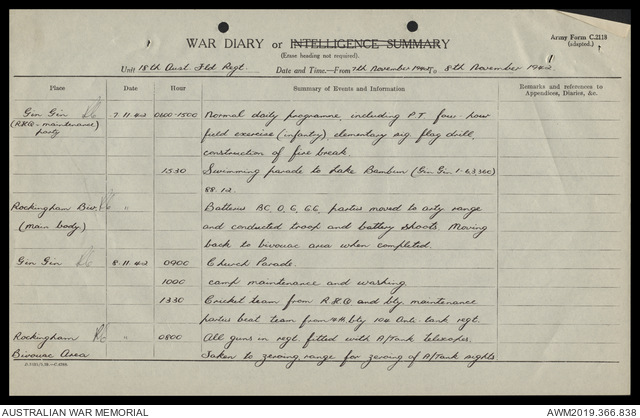 WAR DIARY or INTELLIGENCE SUMMARY
(Erase heading not required).
Army Form C.2118
(adapted.)
Unit 18th Aust. Fld Regt. Date and Time—From 7th November 1942 To 8th November 1942
Place Date Hour Summary of Events and Information Remarks and reference to Appendices, Diaries, &c.
Gin Gin 7.11.42 0600-1500 Normal daily programme, including P.T. four hour
(R.H.Q - maintenance) field exercise (infantry) elementary sig flag drill,
party construction of fire break.
1530 Swimming parade to Lake Bambun (Gin Gin 1-63360)
88.12.
Rockingham Biv. " Batteries BC, O, G, GG, parties moved to arty range
(main body) and conducted troop and battery shoots. Moving
back to bivouac area when completed.
Gin Gin 8.11.42 0900 Church Parade.
1000 camp maintenance and washing
1330 Cricket team from R.H.Q and bty maintenance
parties beat team from bty 104 Anti-tank regt.
Rockingham " 0800 All guns in regt. fitted with A/Tank telescopes.
Bivouac Area Taken to zeroing range for zeroing of A/Tank sights
AUSTRALIAN WAR MEMORIAL AWM2019.366.838